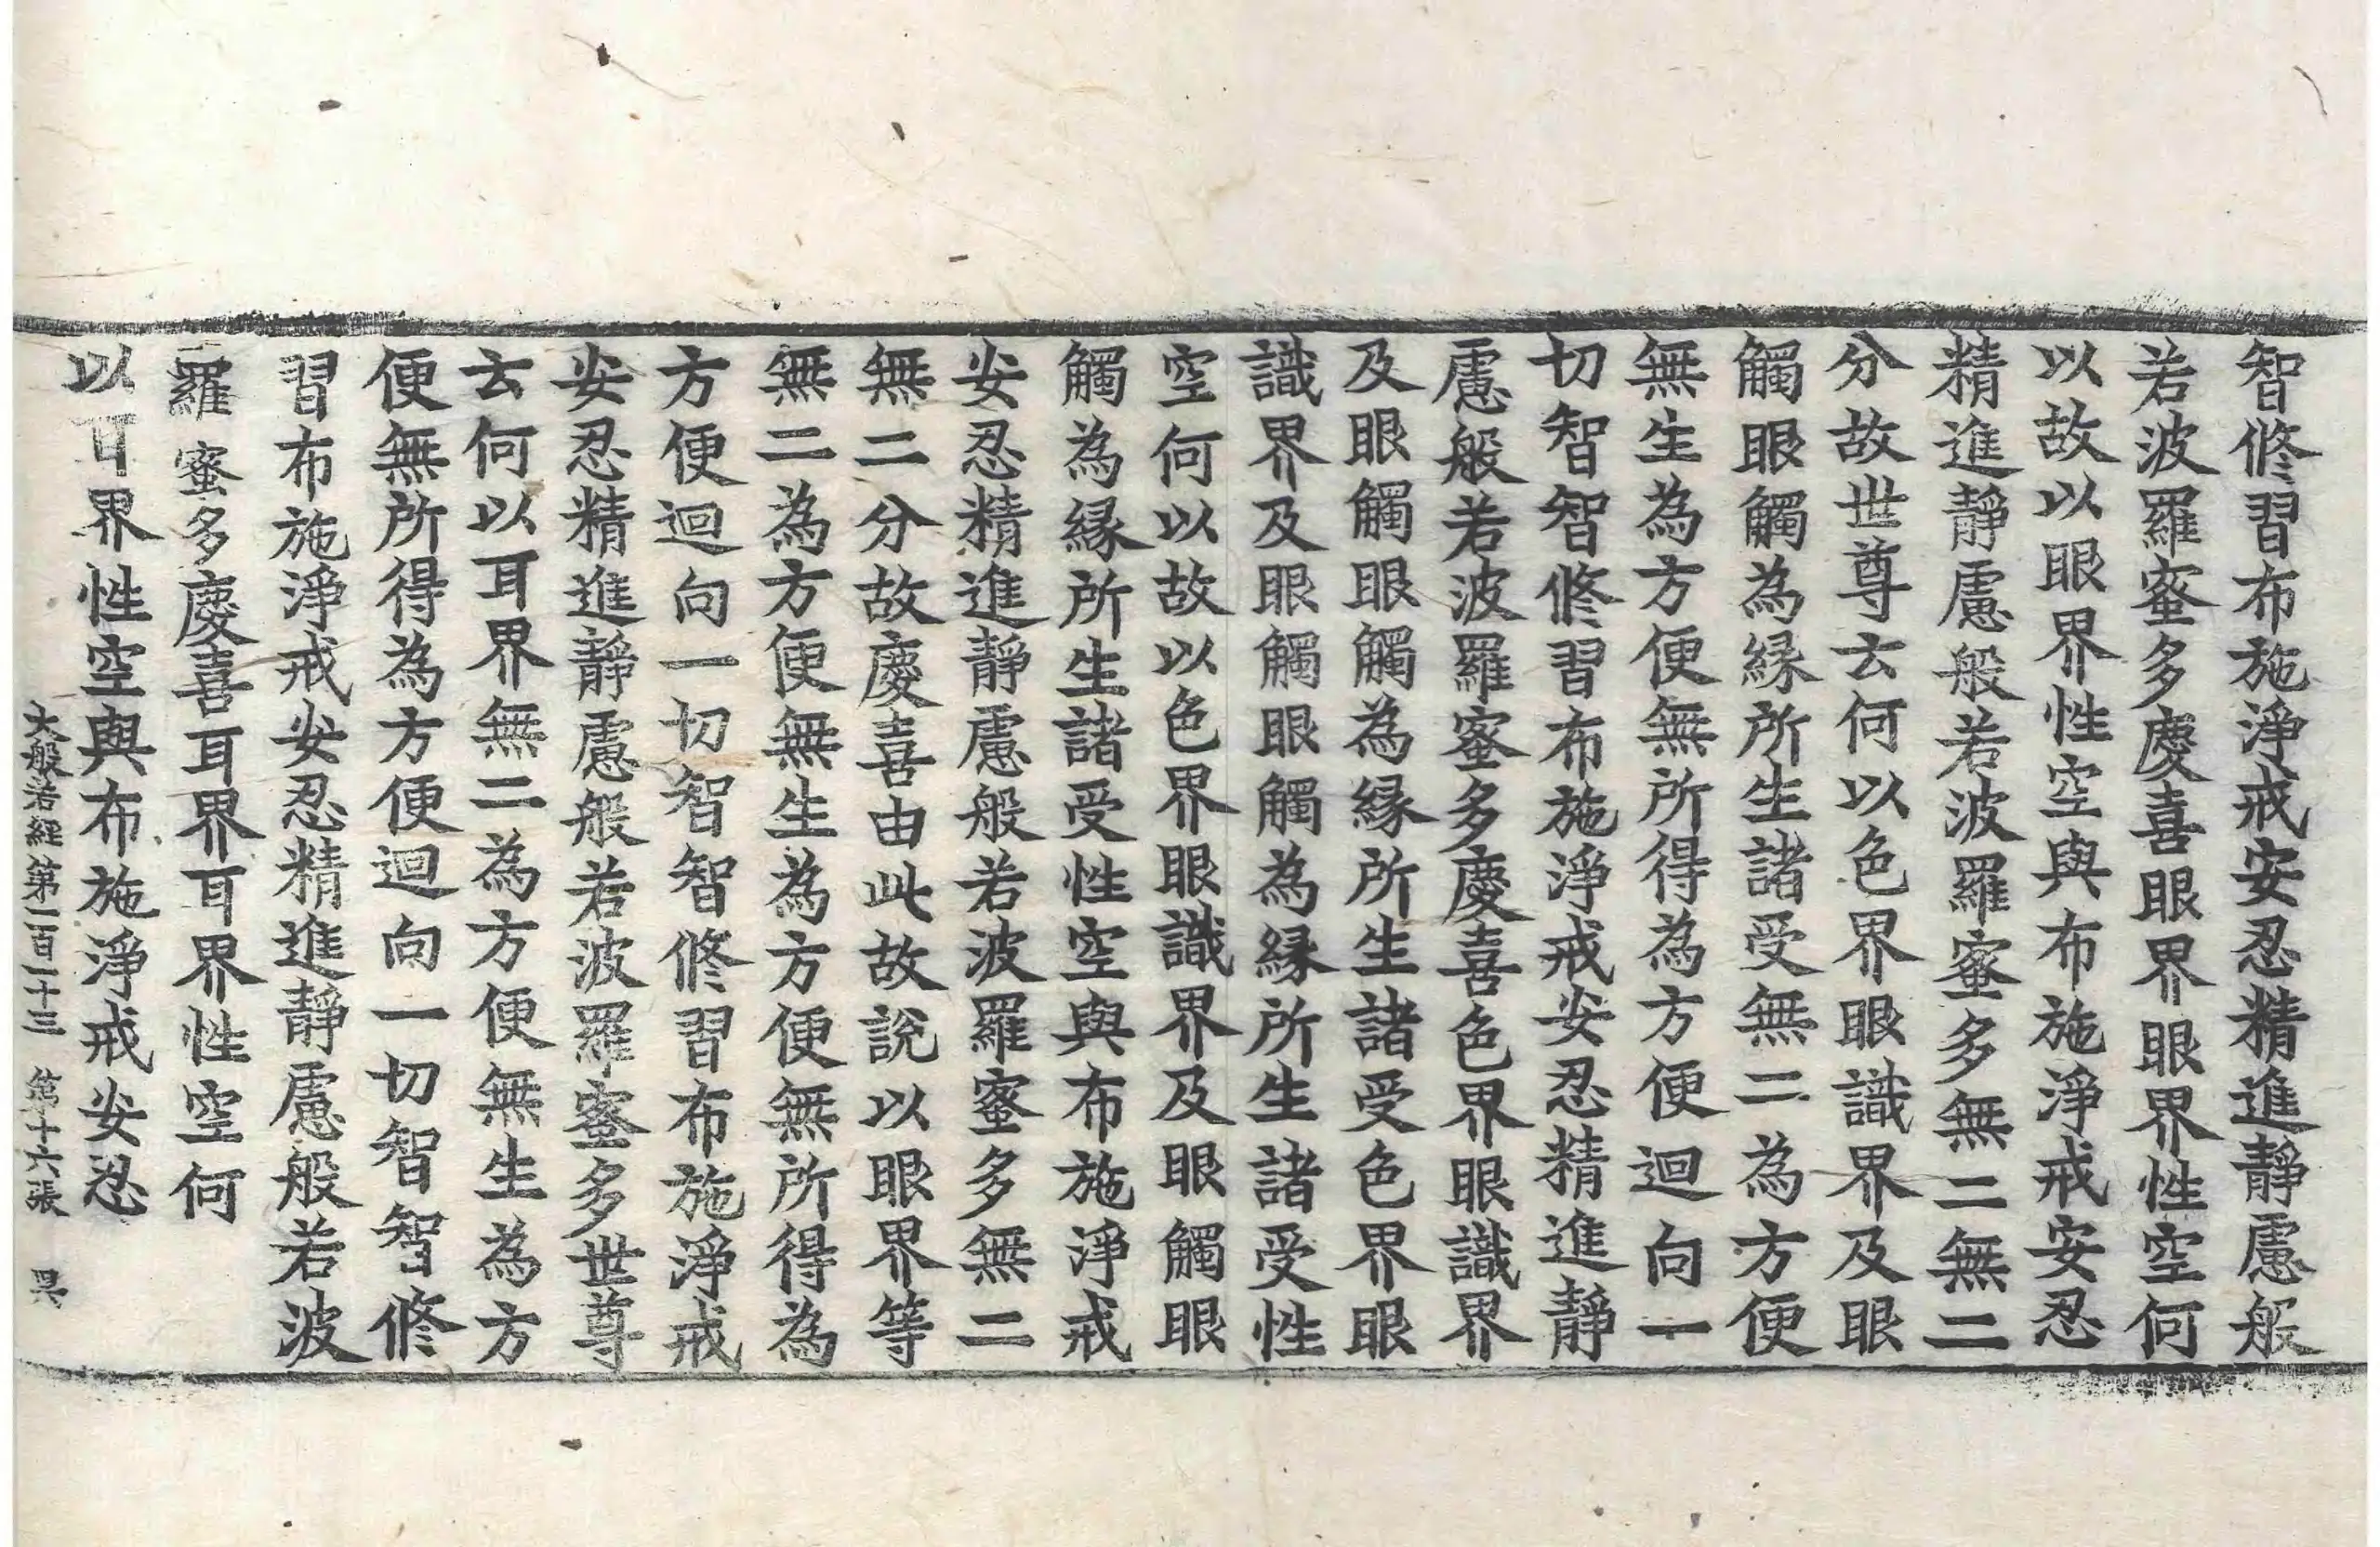 智修習布施淨戒安忍精進靜慮般
若波羅蜜多慶喜眼界眼界性空何
以故以眼界性空與布施淨戒安忍
精進靜慮般若波羅蜜多無二無二
分故世尊云何以色界眼識界及眼
觸眼觸為緣所生諸受無二為方便
無生為方便無所得為方便迴向一
切智智修習布施淨戒安忍精進靜
慮般若波羅蜜多慶喜色界眼識界
及眼觸眼觸為緣所生諸受色界眼
識界及眼觸眼觸為緣所生諸受性
空何以故以色界眼識界及眼觸眼
觸為緣所生諸受性空與布施淨戒
安忍精進靜慮般若波羅蜜多無二
無二分故慶喜由此故說以眼界等
無二為方便無生為方便無所得為
方便迴向一切智智修習布施淨戒
安忍精進靜慮般若波羅蜜多世尊
云何以耳界無二為方便無生為方
便無所得為方便迴向一切智智修
習布施淨戒安忍精進靜慮般若波
羅蜜多慶喜耳界耳界性空何
以耳界性空與布施淨戒安忍
大般若經第一百一十三 第十六張 昃